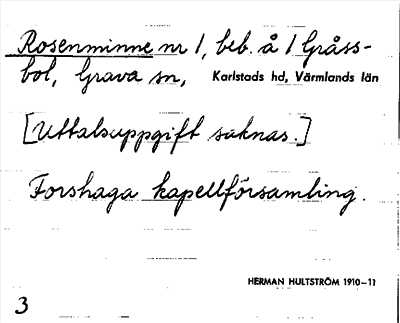 Rosenminne nr 1, beb. å 1 Gråss-
bol, Grava sn, Karlstads hd, Värmlands län
[Uttalsuppgift saknas.]
Forshaga kapellförsamling.
HERMAN HULTSTRÖM 1910–11
3